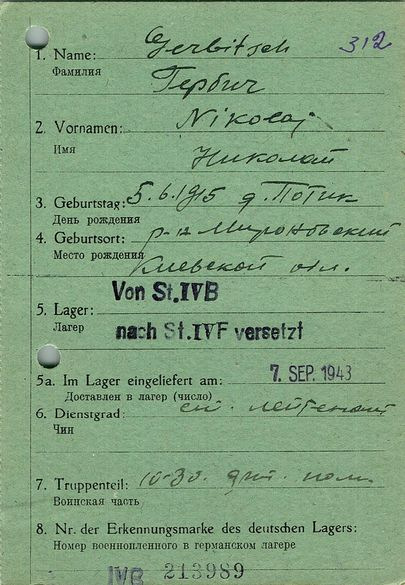 312
1. Name: Gerbitsch
Фамилия Гербич
2. Vornamen: Nikolaj
Имя Николай
3. Geburtstag: 5.6.1915 д. Потик
День рождения
4. Geburtsort: р-на Мироновский
Место рождения Киевской обл.
Von St.IVB
5. Lager:
Лагерь
nach St.IVF versetzt
5a. Im Lager eingeliefert am: 7. SEP. 1943
Доставлен в лагерь (число)
6. Dienstgrad: лейтенант
Чин
7. Truppenteil:
Воинская часть
8. Nr. der Erkennungsmarke des deutschen Lagers:
Номер военнопленного в германском лагере
IVB 213989